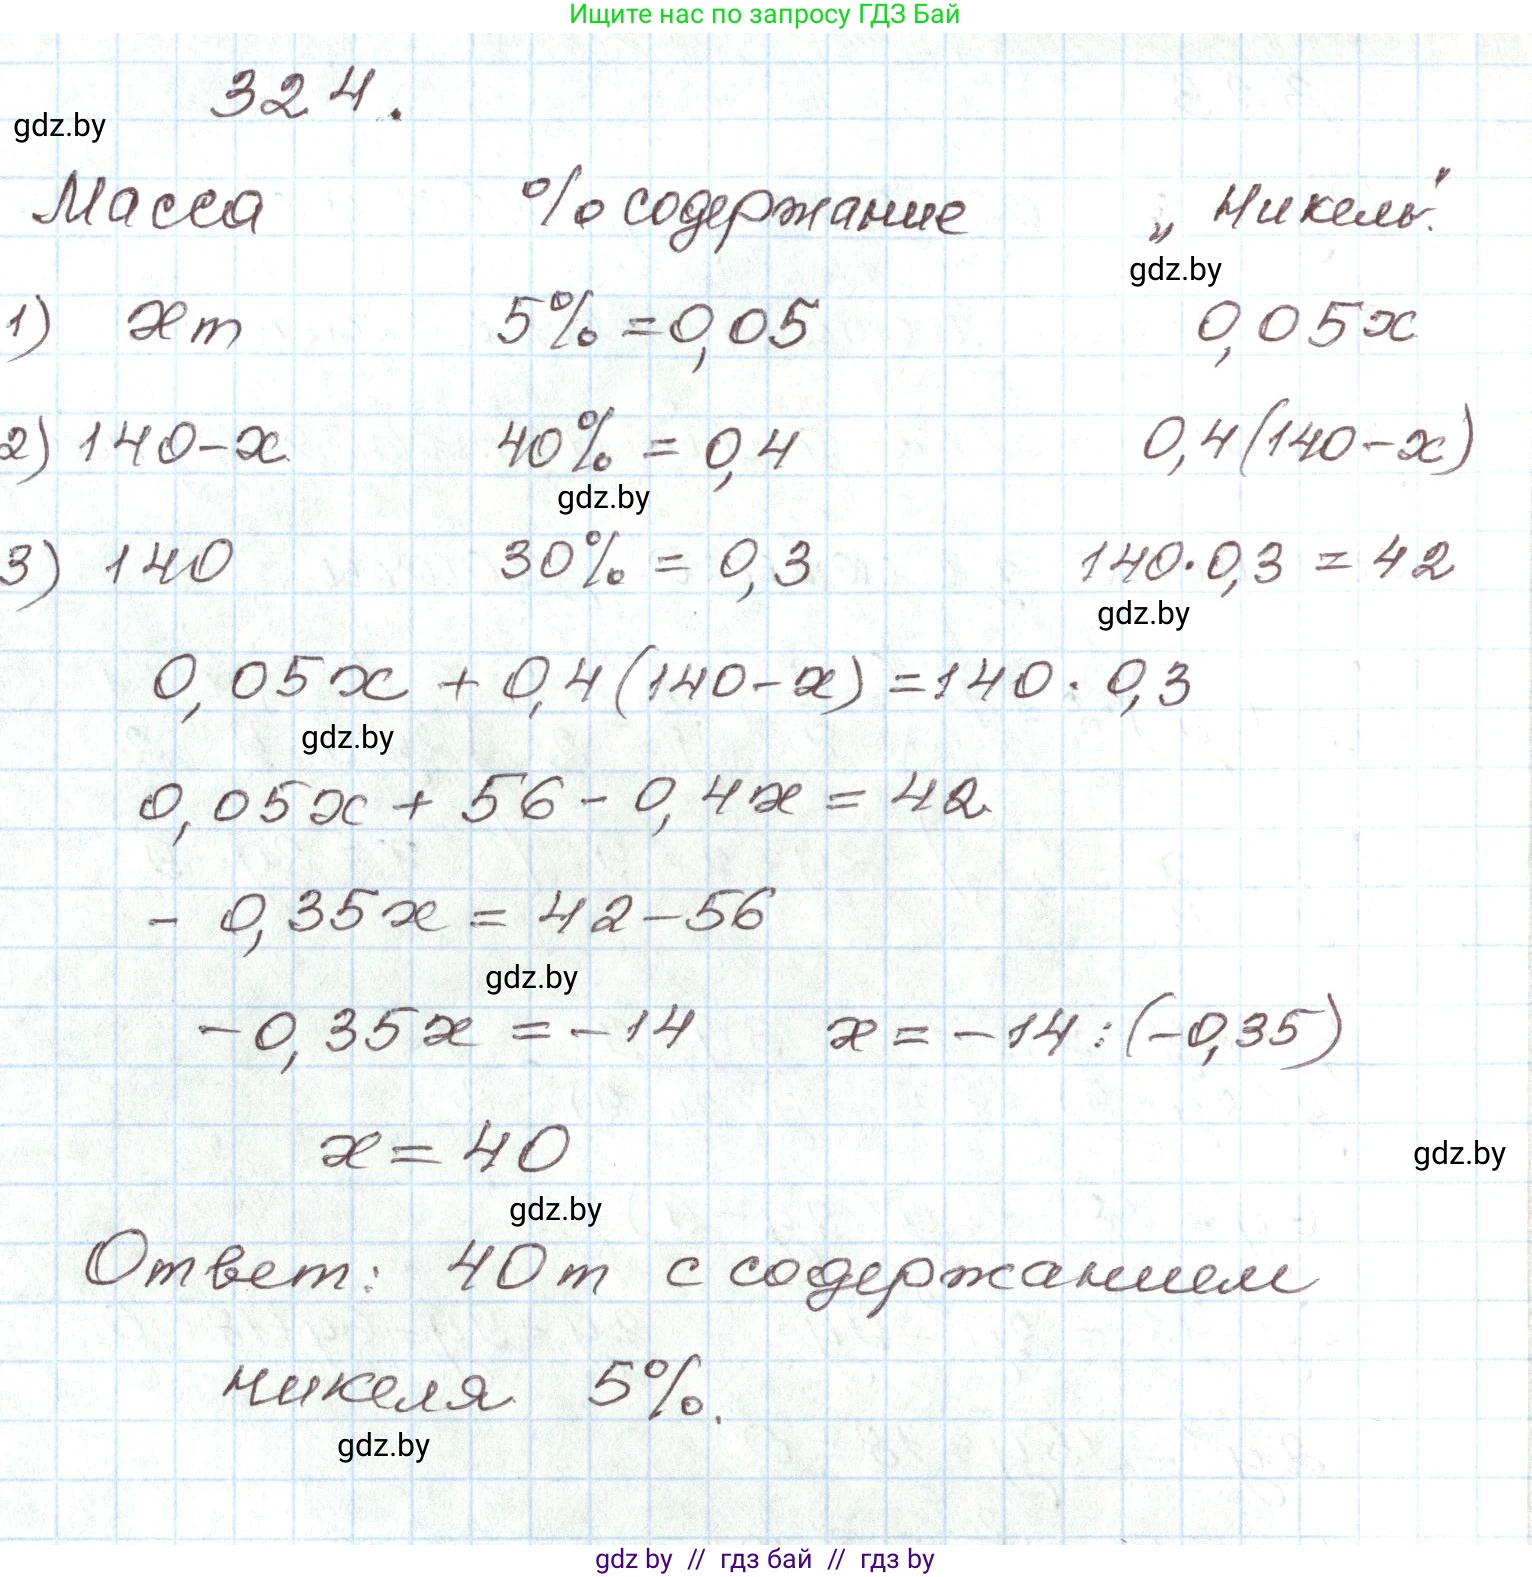 Ищите нас по запросу ГДЗ Бай
324.
gdz.by
Масса % содержание „Никель".
gdz.by
1) xт 5% = 0,05 0,05x
2) 140-x 40% = 0,4 0,4(140-x)
gdz.by
3) 140 30% = 0,3 140·0,3 = 42
gdz.by
0,05x + 0,4(140-x) = 140·0,3
gdz.by
0,05x + 56 - 0,4x = 42
- 0,35x = 42-56
gdz.by
-0,35x = -14 x = -14:(-0,35)
x = 40
gdz.by
gdz.by
Ответ: 40т с содержанием
никеля 5%.
gdz.by
gdz by // гдз бай // гдз by